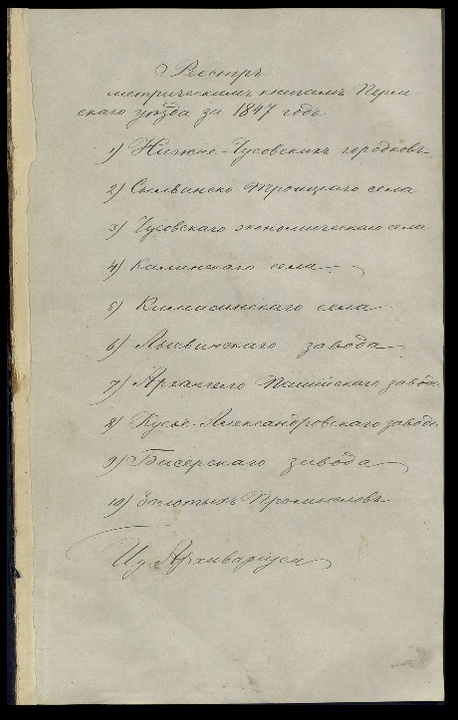 Реестръ
метрическимъ книгамъ Перм
скаго уѣзда за 1847 годъ
1) Нижне-Чусовскихъ городковъ
2) Сылвинско Троицкаго села
3) Чусовскаго экономическаго села
4) Калинскаго села
5) Камасинскаго села
6) Лысвинскаго завода
7) Архангело Пашійскаго завода
8) Кусье-Александровскаго завода
9) Бисерскаго завода
10) Золотыхъ Промысловъ
И д Архиваріуса